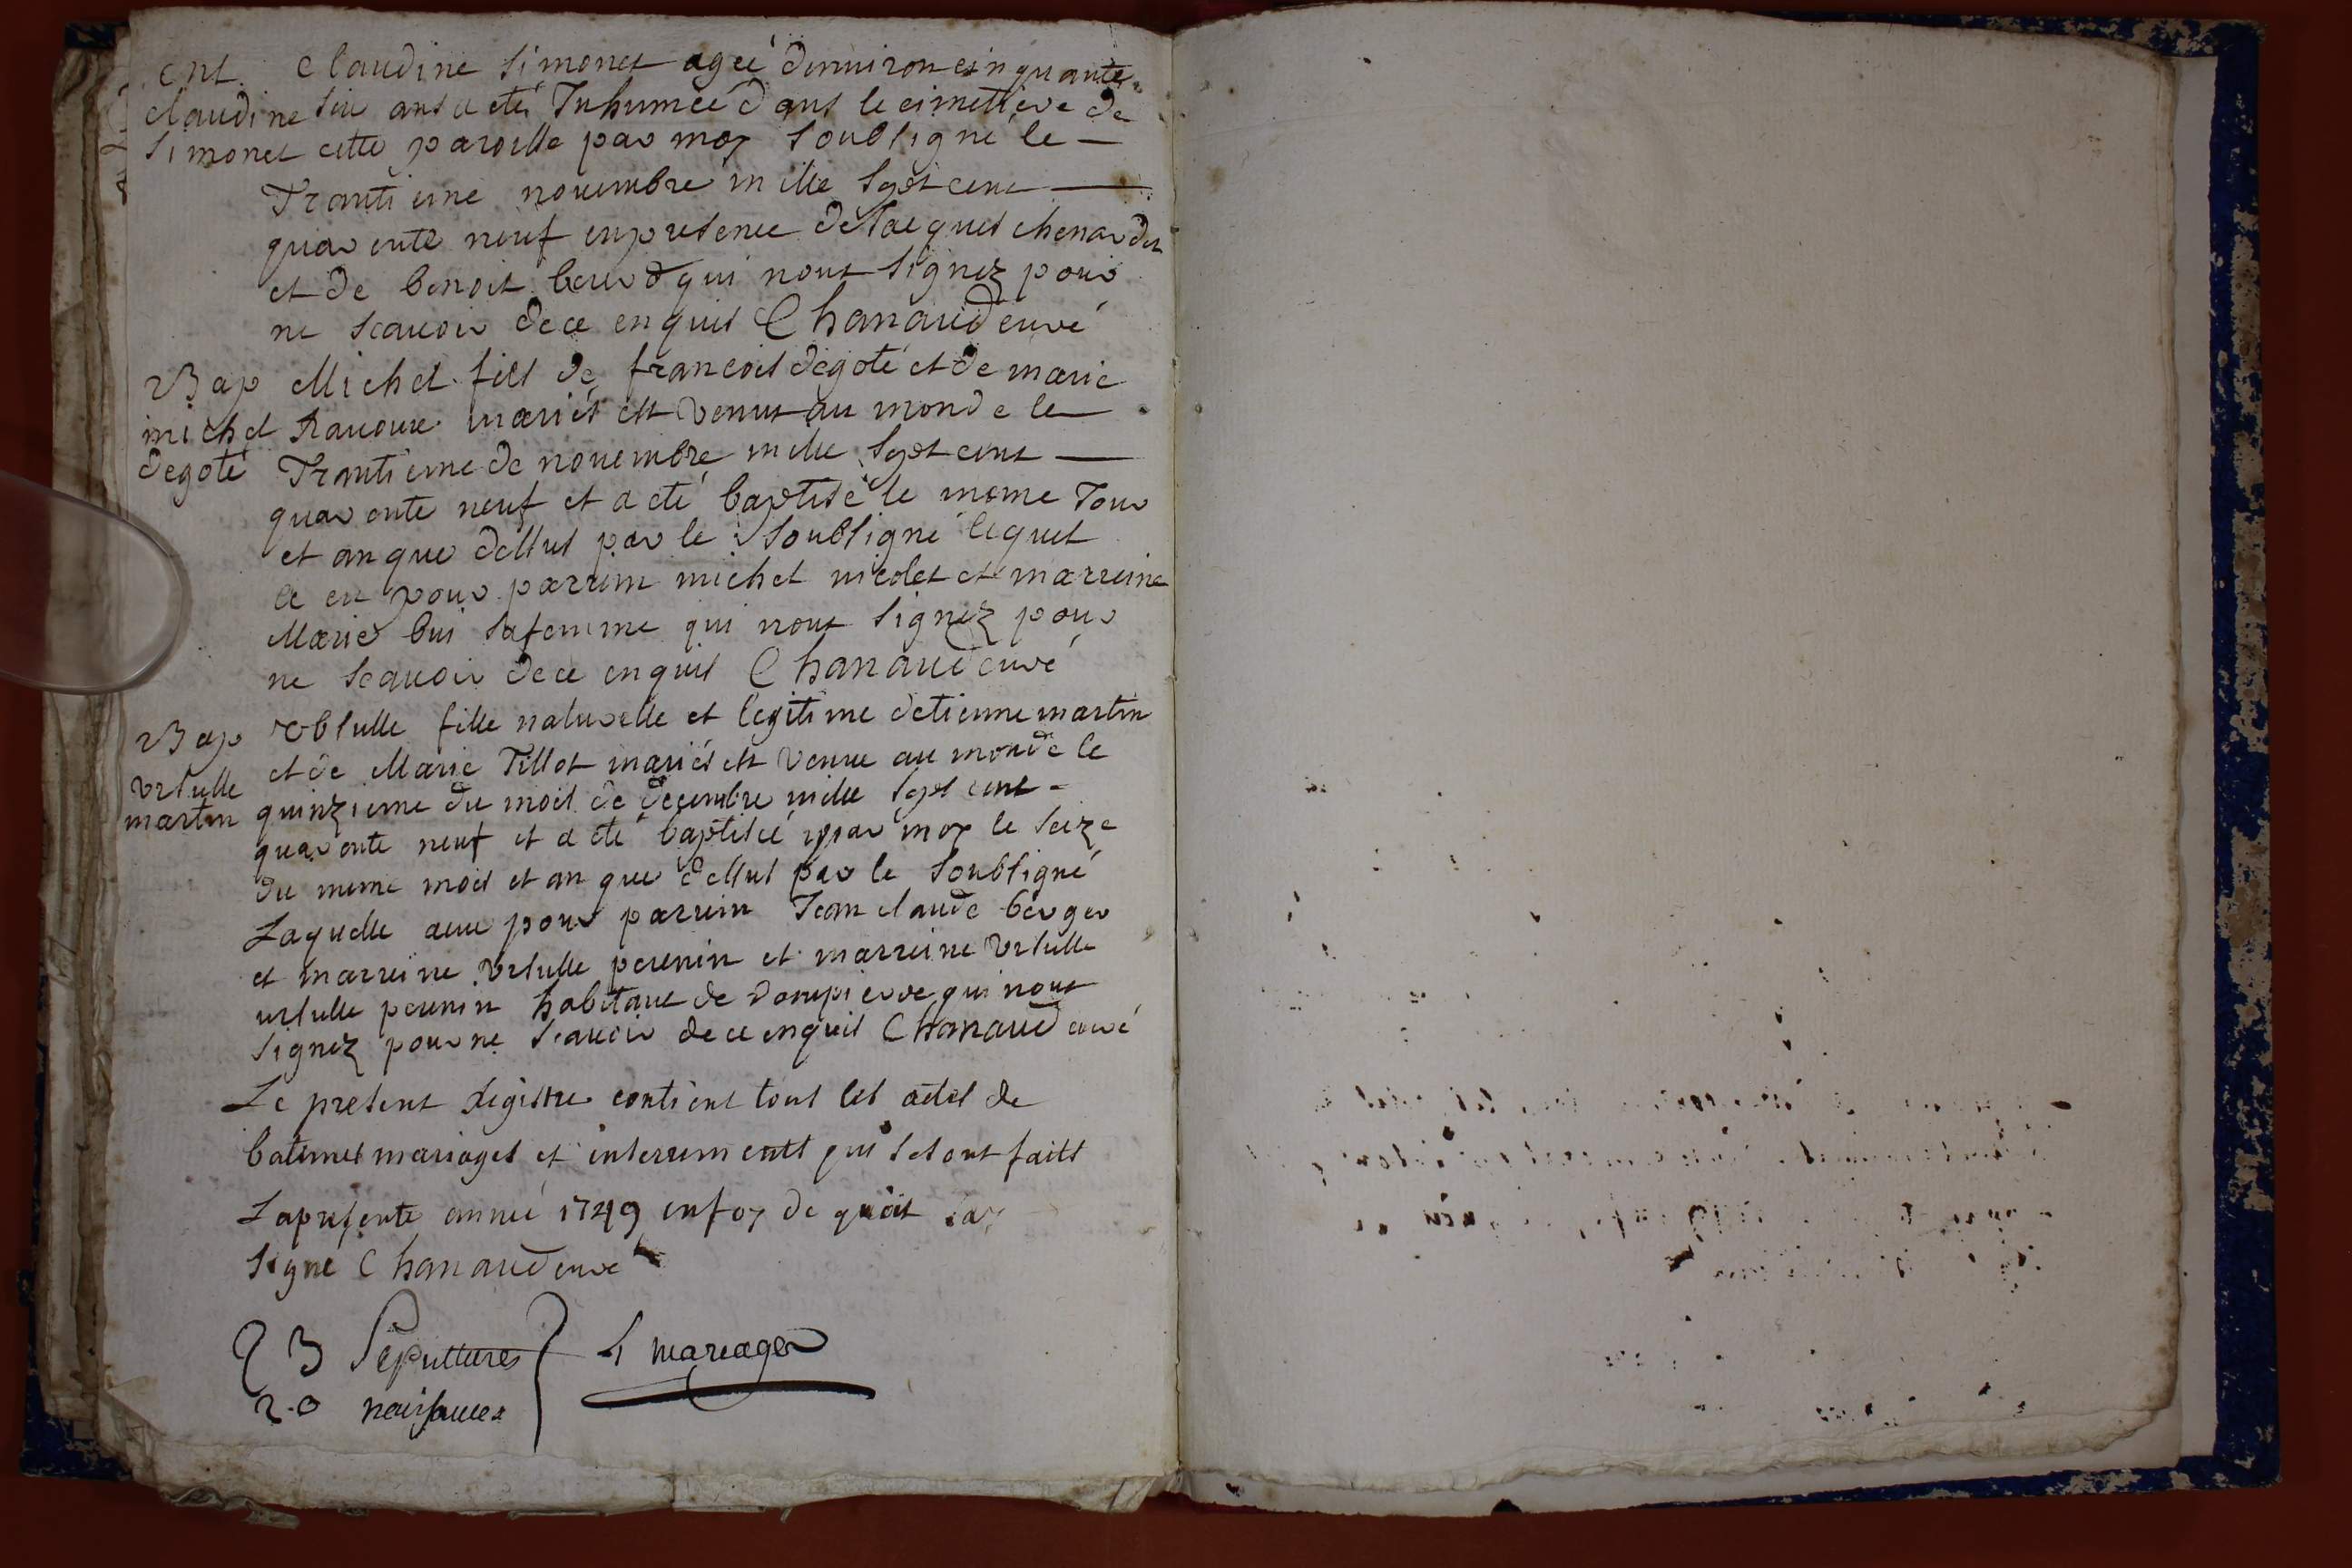 ent. Claudine Simonet ageé denuiron cinquante
claudine six ans a eté Inhumeé dans le cimetiere de
Simonet cette paroisse par moy Soubsigné le
Trantieme nouembre mille Sept cent
quarente neuf enpresence de Jacques chenardet
et de benoit qui nont Signez pour
ne Scauoir dece enquis Chanaud curé
Bap Michel fils de francois degote et de marie
michel mariés est venut au monde le
degote Trantieme de nouembre mille Sept cent
quarente neuf et a eté baptisé le meme Jour
et an que dessus par le Soubsigné lequel
a eu pour parrin michel nicolet et marreine
Marie bui Safemme qui nont Signez pour
ne Scauoir dece enquis Chanaud curé
Bap fille naturelle et legitime detienne martin
et de Marie Tillot mariés est venue au monde le
vrsulle quinzieme du mois de decembre mille Sept cent
martin quarente neuf et a eté baptiseé par moy le Seize
du meme mois et an que dessus par le Soubsigné
Laquelle aeue pour parrin Jean claude berger
et marreine vrsulle perenin et marreine vrsulle
ursulle perenin habitant de dompierre qui nont
Signez pour ne Scauoir dece enquis Chanaud curé
Le present Registre contient tous les actes de
batemes mariages et interrements qui Se sont faits
Lapresente anneé 1749 enfoy de quoit Jay
Signe Chanaud curé
23 Sepultures 4 mariages
20 naissances